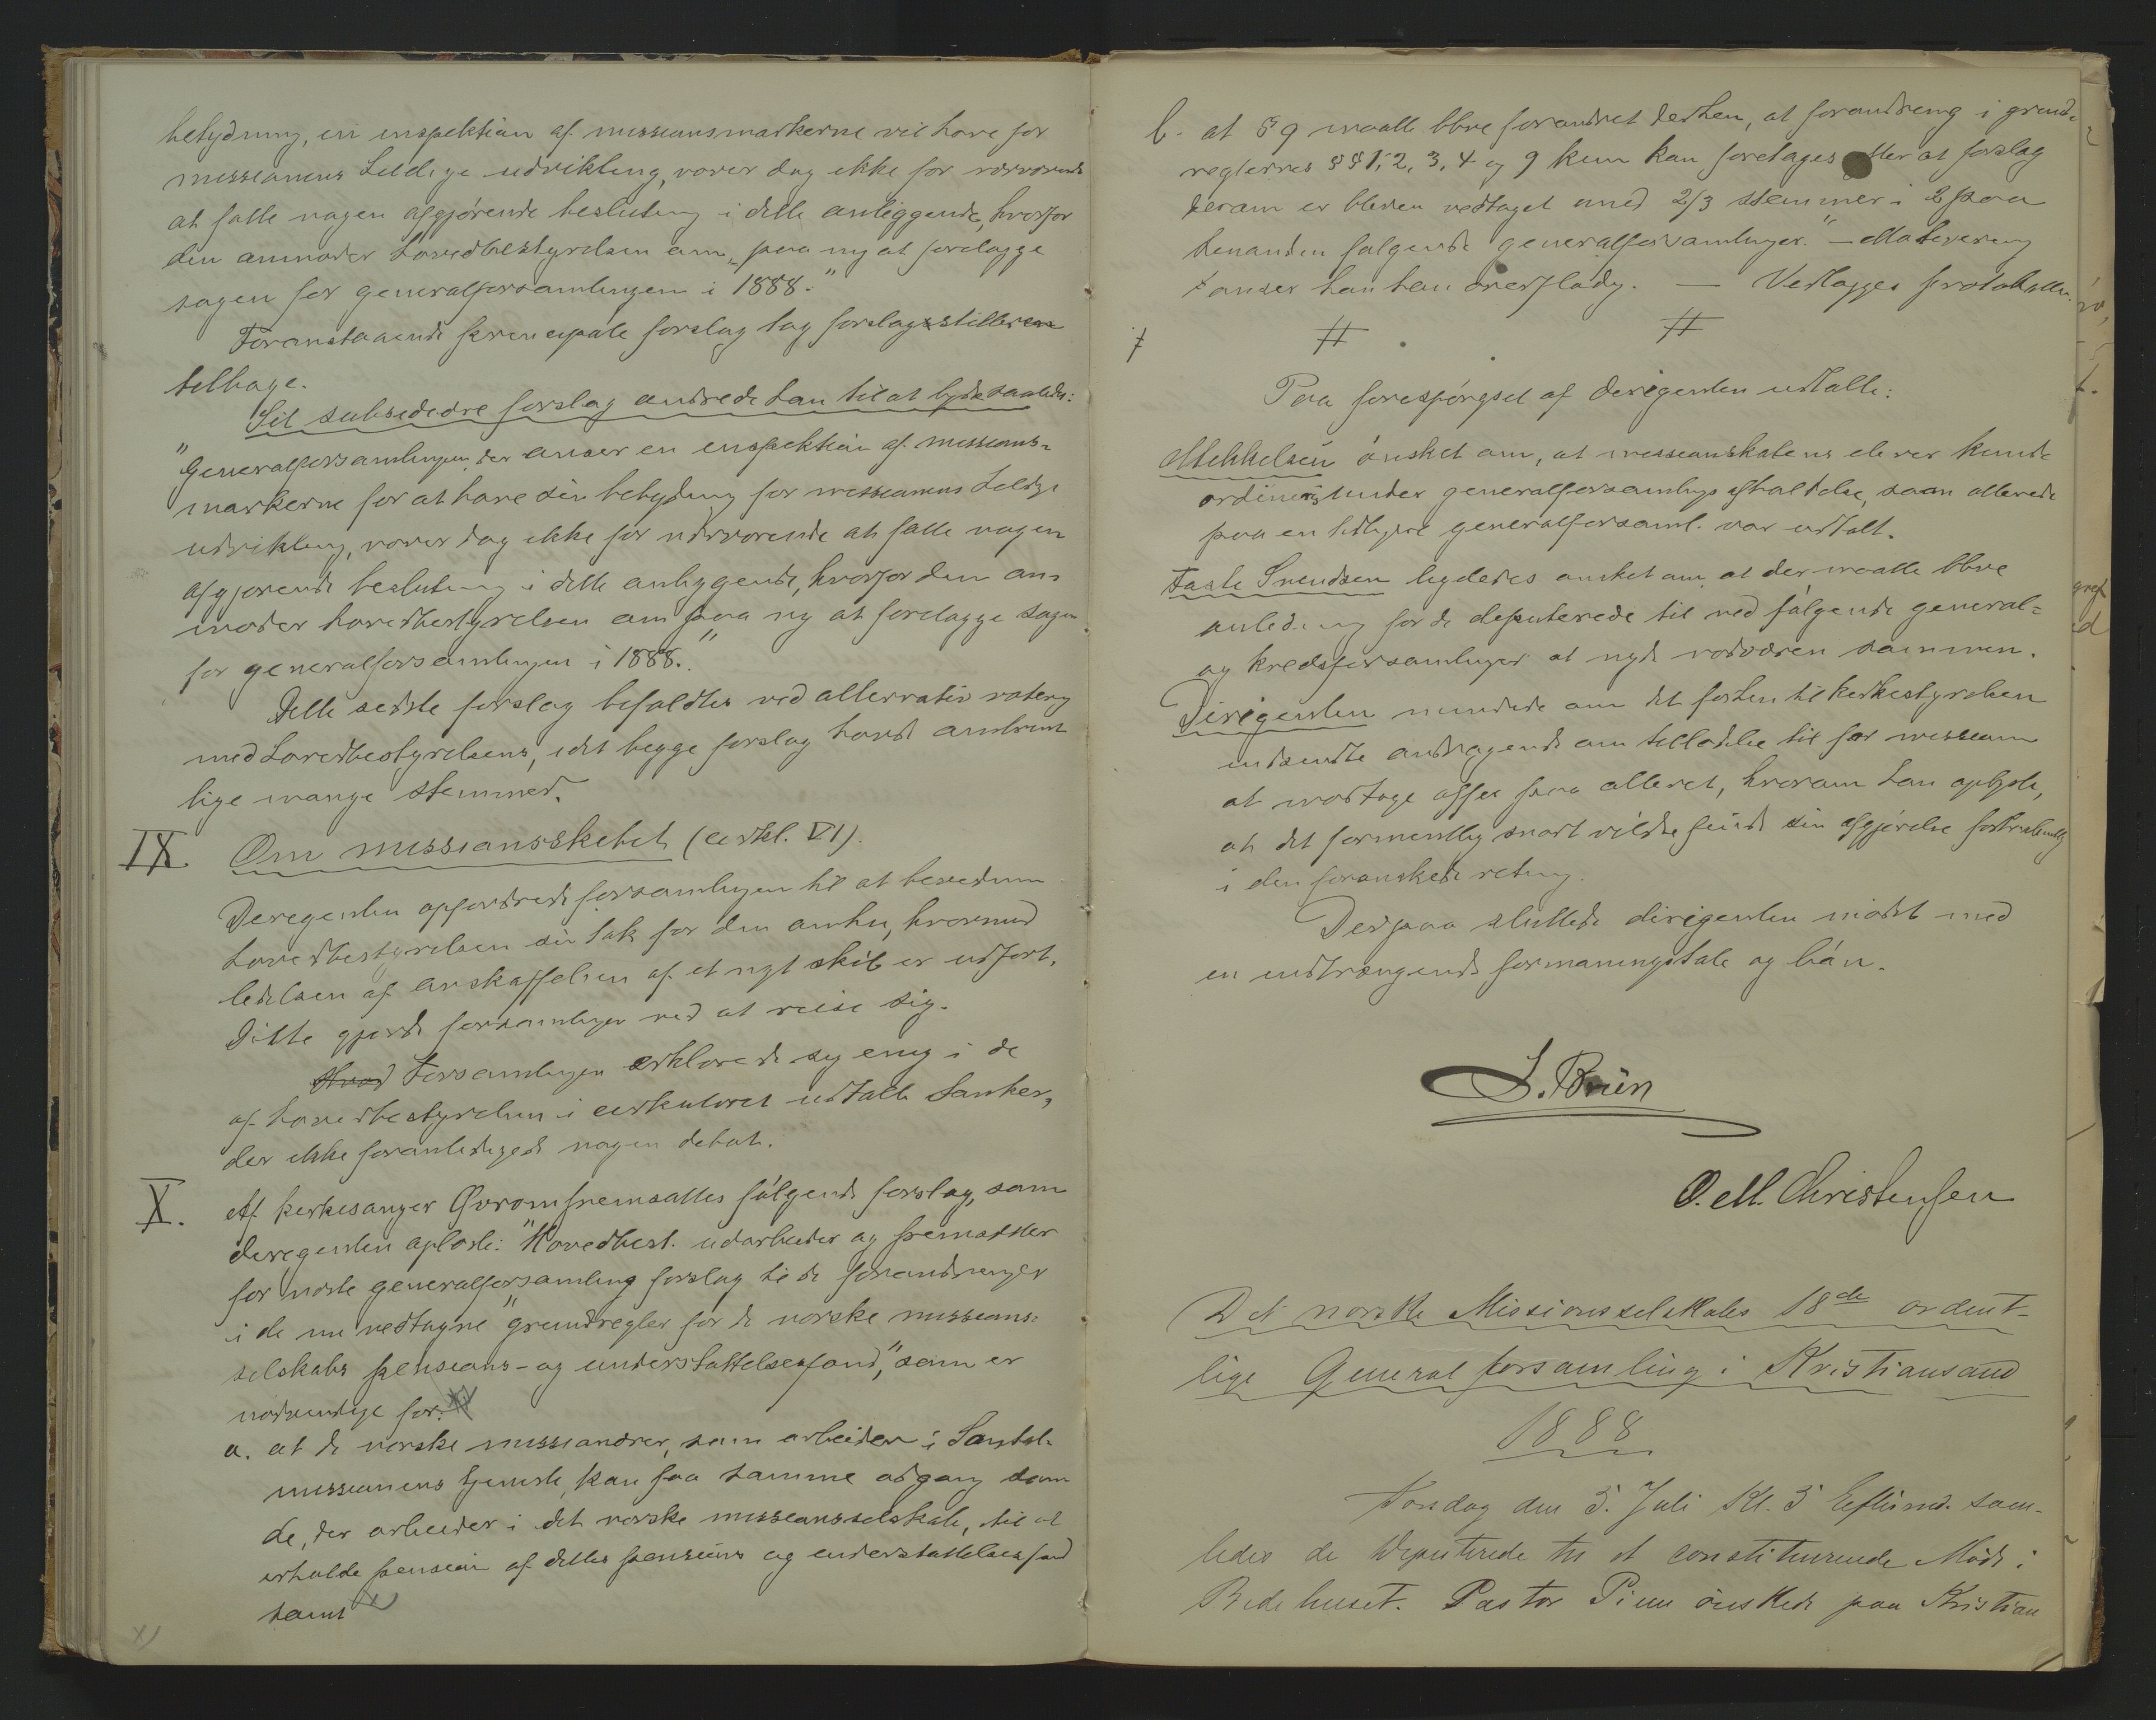 betydning, en inspektion af missionsmarkerne vil have for
missionens heldige udvikling, vover dog ikke for nærværende
at fatte nogen afgjørende beslutning i dette anliggende, hvorfor
den anmoder hovedbestyrelsen om "paa ny at forelægge
sagen for generalforsamlingen i 1888."
Foranstaaende principale forslag tog forslagsstilleren
tilbage.
Sit subsidiære forslag ændrede han til at lyde saaledes:
"Generalforsamlingen, der anser en inspektion af missions-
markerne for at have sin betydning for missionens heldige
udvikling, vover dog ikke for nærværende at fatte nogen
afgjørende beslutning i dette anliggende, hvorfor den an-
moder hovedbestyrelsen om paa ny at forelægge sagen
for generalforsamlingen i 1888."
Dette sidste forslag befaldtes ved alternativ votering
med hovedbestyrelsens, idet begge forslag havde omtrent
lige mange stemmer.
IX. Om missionsskibet (cirkl. VI).
Dirigenten opfordrede forsamlingen til at bevidne
hovedbestyrelsen sin tak for den omhu, hvormed
ledelsen af anskaffelsen af et nyt skib er udført.
Dette gjorde forsamlingen ved at reise sig.
Hvad Forsamlingen erklærede sig enig i de
af hovedbestyrelsen i cirkulæret udtalte tanker,
der ikke foranledigede nogen debat.
X. Af kirkesanger Qvrom fremsattes følgende forslag, som
dirigenten oplæste: "Hovedbest. udarbeider og fremsætter
for næste generalforsamling forslag til de forandringer
i de nu vedtagne "grundregler for de norske missions-
selskabs pensions- og understøttelsesfond", som er
nødvendige for: x)
a. at de norske missionærer, som arbeider i Santal-
missionens tjeneste, kan faa samme adgang som
de, der arbeider i det norske missionsselskab, til at
erholde pension af dettes pensions og understøttelsesfond
samt x)
x)
b. at § 9 maatte blive forandret derhen, at forandring i grund-
reglernes §§ 1, 2, 3, 4 og 9 kun kan foretages efter at forslag
derom er bleven vedtaget med 2/3 stemmer i 2 paa
hinanden følgende generalforsamlinger." – Motivering
anser han han overflødig. — Vedlægges protokollen.
Paa forespørgsel af dirigenten udtalte:
Mikkelsen ønsket om, at missionsskolens elever kunde
ordineres under generalforsamlings afholdelse, som allerede
paa en tidligere generalforsaml. var udtalt.
Faste Svendsen ligeledes ønsket om, at der maatte blive
anledning for de deputerede til ved følgende general-
og kredsforsamlinger at nyde nadveren sammen.
Dirigenten mindede om det forhen til kirkestyrelsen
indsendte andragende om tilladelse til for missionen
at modtage offer paa alteret, hvorom han oplyste,
at det formentlig snart vilde finde sin afgjørelse forhaabentlig
i den forønskede retning.
Derpaa sluttede dirigenten mødet med
en indtrængende formaningstale og bøn.
J. Bruun
O. M. Christensen
Det norske Missionsselskabs 18de ordent-
lige Generalforsamling i Kristiansand
1888
Torsdag den 5. Juli Kl. 5 Efterm. sam-
ledes de Deputerede til et constituerende Møde i
Bedehuset. Pastor Piene ønskede paa Kristian